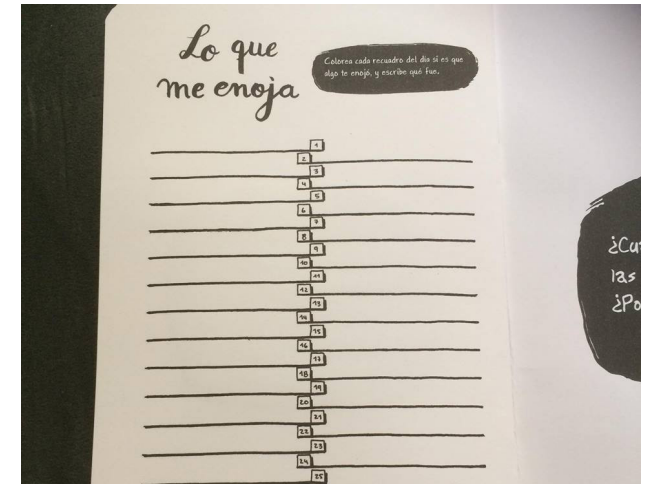 Lo que
me enoja
Colorea cada recuadro del día si es que
algo te enojó, y escribe qué fue.
1
2
3
4
5
6
7
8
9
10
11
12
13
14
15
16
17
18
19
20
21
22
23
24
25
las